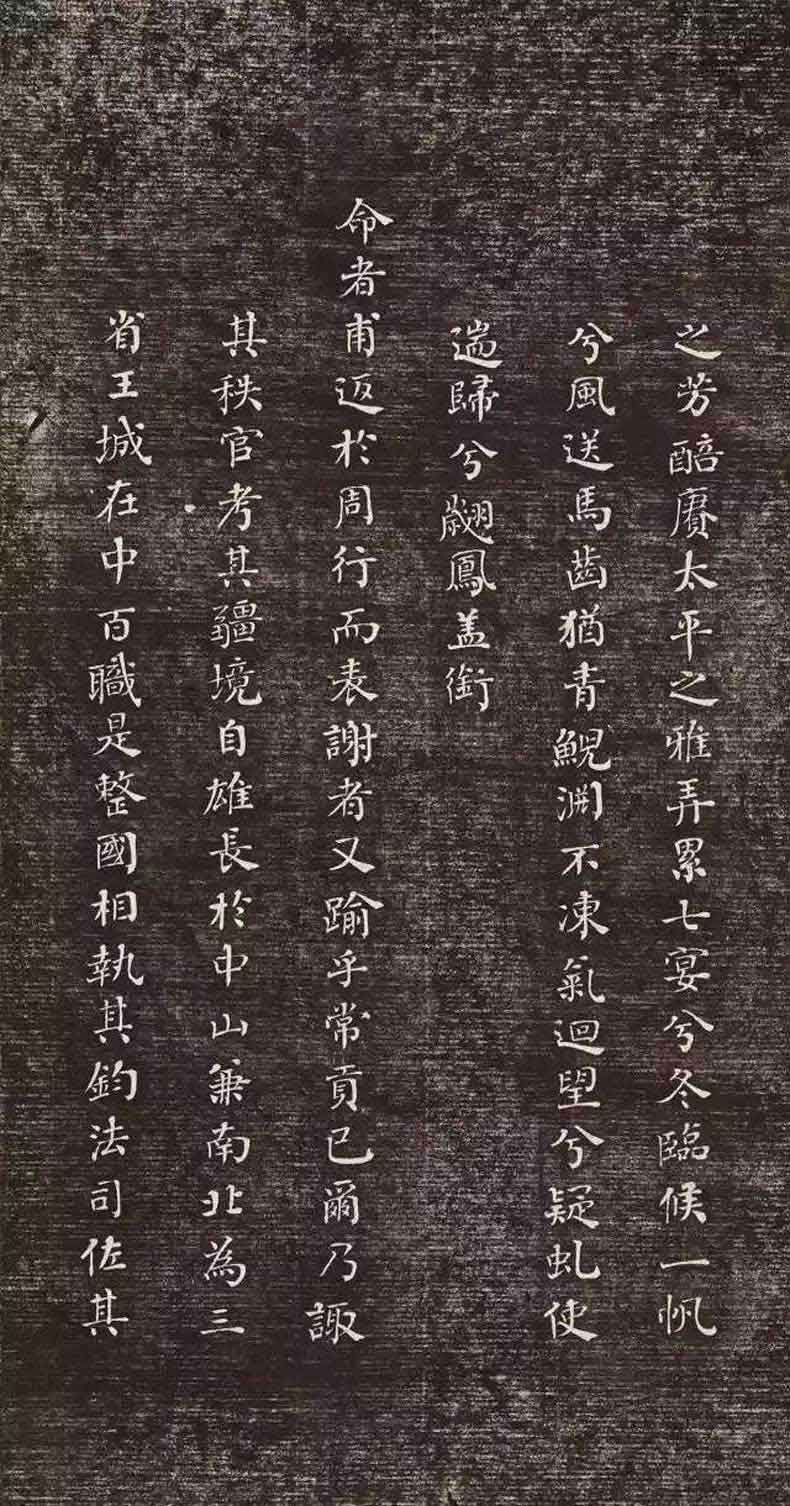 之芳醅賡太平之雅弄累七宴兮冬臨候一帆
兮風送馬齒猶青鯢淵不凍氣迴望兮疑虬使
遄歸兮翽鳳蓋銜
命者甫返於周行而表謝者又踰乎常貢已爾乃諏
其秩官考其疆境自雄長於中山兼南北為三
省王城在中百職是整國相執其鈞法司佐其